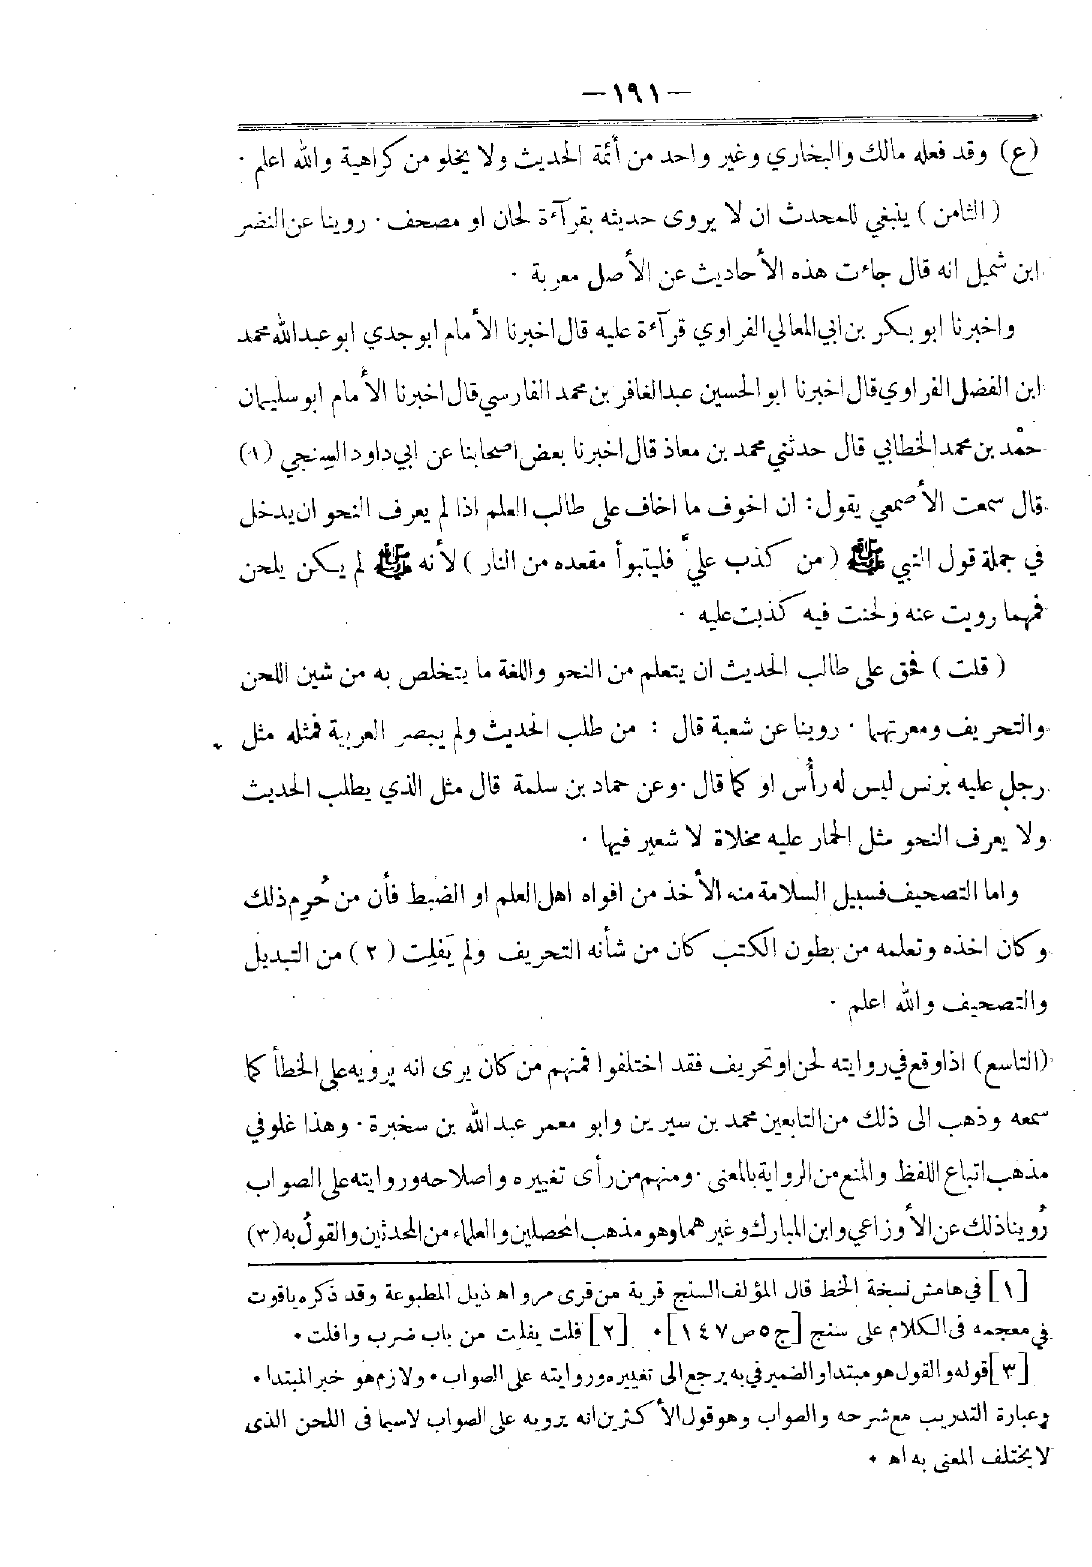 — ١٩١ —
(ع) وقد فعله مالك والبخاري وغير واحد من أئمة الحديث ولا يخلو من كراهية والله اعلم ٠
( الثامن ) ينبغي للمحدث ان لا يروى حديثه بقرآءة لحان او مصحف ٠ روينا عن النضر
ابن شميل انه قال جاءت هذه الأحاديث عن الأصل معربة ٠
واخبرنا ابو بكر بن ابي المعالي الفراوي قرآءة عليه قال اخبرنا الأمام ابو جدي ابو عبدالله محمد
ابن الفضل الفراوي قال اخبرنا ابو الحسين عبدالغافر بن محمد الفارسي قال اخبرنا الأمام ابو سليمان
حمْد بن محمد الخطابي قال حدثني محمد بن معاذ قال اخبرنا بعض اصحابنا عن ابي داود السِنجي (١)
قال سمعت الأصمعي يقول: ان اخوف ما اخاف على طالب العلم اذا لم يعرف النحو ان يدخل
في جملة قول النبي ﷺ ( من كذب عليَّ فليتبوأ مقعده من النار ) لأنه ﷺ لم يكن يلحن
فمهما رويت عنه ولحنت فيه كذبت عليه ٠
( قلت ) فحق على طالب الحديث ان يتعلم من النحو واللغة ما يتخلص به من شين اللحن
والتحريف ومعرتهما ٠ روينا عن شعبة قال : من طلب الحديث ولم يبصر العربية فمثله مثل
رجل عليه بُرنس ليس له رأس او كما قال ٠ وعن حماد بن سلمة قال مثل الذي يطلب الحديث
ولا يعرف النحو مثل الحمار عليه مخلاة لا شعير فيها ٠
واما التصحيف فسبيل السلامة منه الأخذ من افواه اهل العلم او الضبط فأن من حُرِم ذلك
وكان اخذه وتعلمه من بطون الكتب كان من شأنه التحريف ولم يَفلِت ( ٢ ) من التبديل
والتصحيف والله اعلم ٠
(التاسع) اذا وقع في روايته لحن او تحريف فقد اختلفوا فمنهم من كان يرى انه يرويه على الخطأ كما
سمعه وذهب الى ذلك من التابعين محمد بن سيرين وابو معمر عبدالله بن سخبرة ٠ وهذا غلو في
مذهب اتباع اللفظ والمنع من الرواية بالمعنى ٠ ومنهم من رأى تغييره واصلاحه وروايته على الصواب
رُوينا ذلك عن الأوزاعي وابن المبارك وغيرهما وهو مذهب المحصلين والعلماء من المحدثين والقولُ به (٣)
[١] في هامش نسخة الخط قال المؤلف السنج قرية من قرى مرو اه ذيل المطبوعة وقد ذكره ياقوت
في معجمه فى الكلام على سنج [ج ٥ ص ١٤٧] ٠ [٢] فلت يفلت من باب ضرب وافلت ٠
[٣] قوله والقول هو مبتدا والضمير في به يرجع الى تغييره وروايته على الصواب ٠ ولازم هو خبر المبتدا ٠
وعبارة التدريب مع شرحه والصواب وهو قول الأكثرين انه يرويه على الصواب لاسيما فى اللحن الذى
لا يختلف المعنى به اه ٠